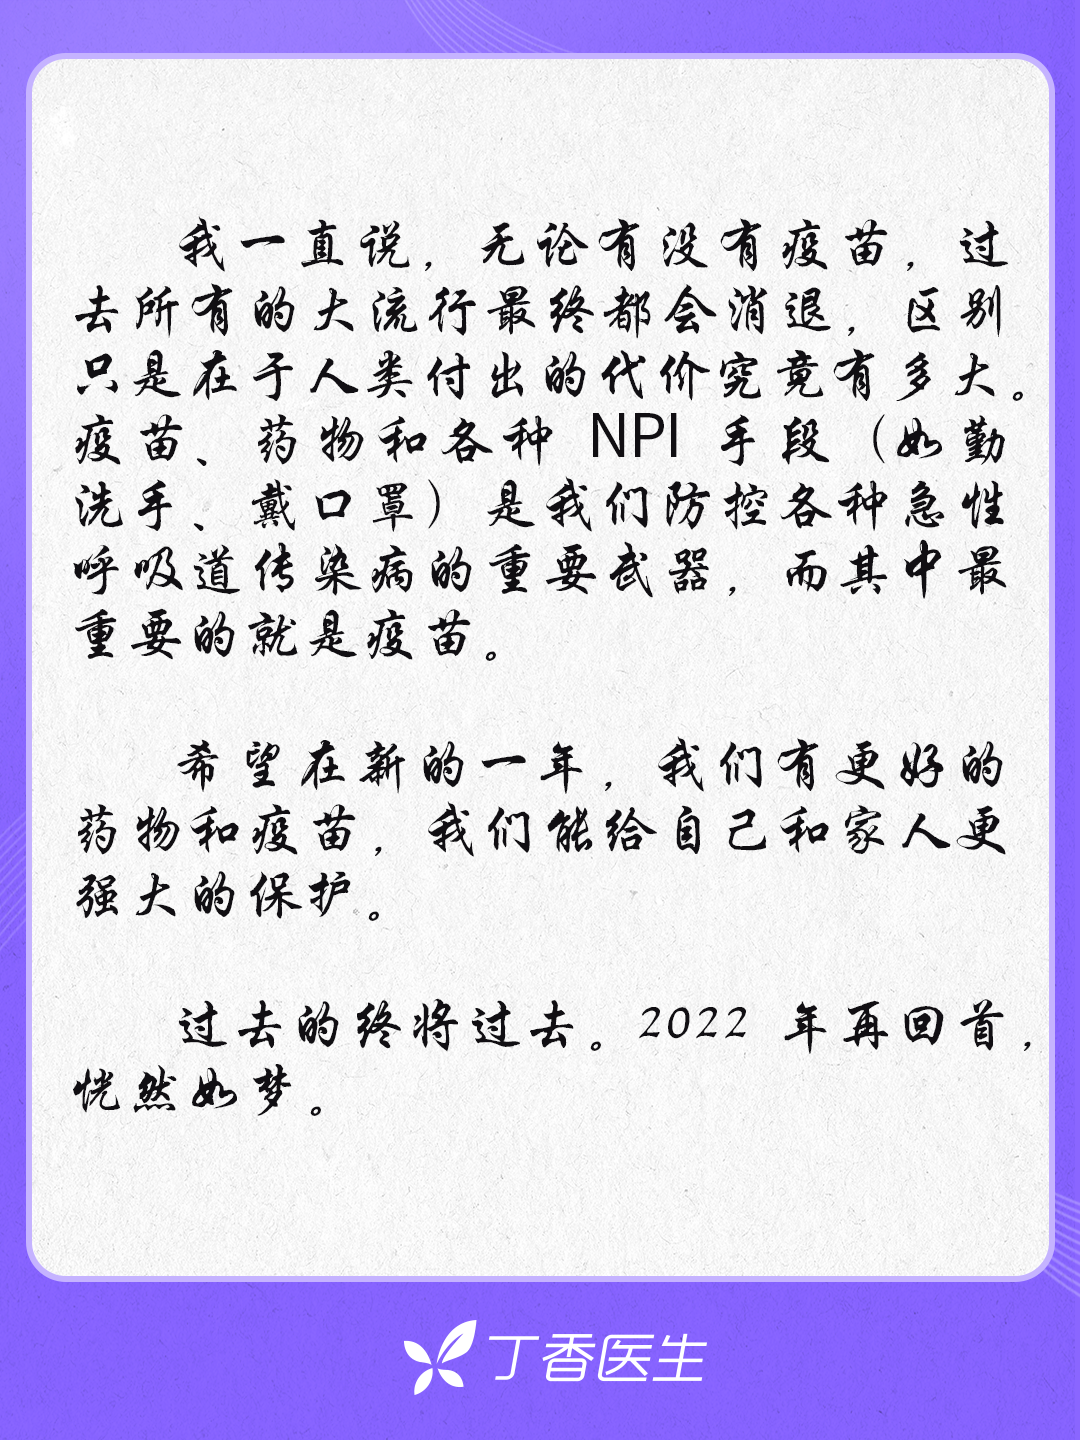 我一直说，无论有没有疫苗，过
去所有的大流行最终都会消退，区别
只是在于人类付出的代价究竟有多大。
疫苗、药物和各种 NPI 手段（如勤
洗手、戴口罩）是我们防控各种急性
呼吸道传染病的重要武器，而其中最
重要的就是疫苗。
希望在新的一年，我们有更好的
药物和疫苗，我们能给自己和家人更
强大的保护。
过去的终将过去。2022 年再回首，
恍然如梦。
丁香医生